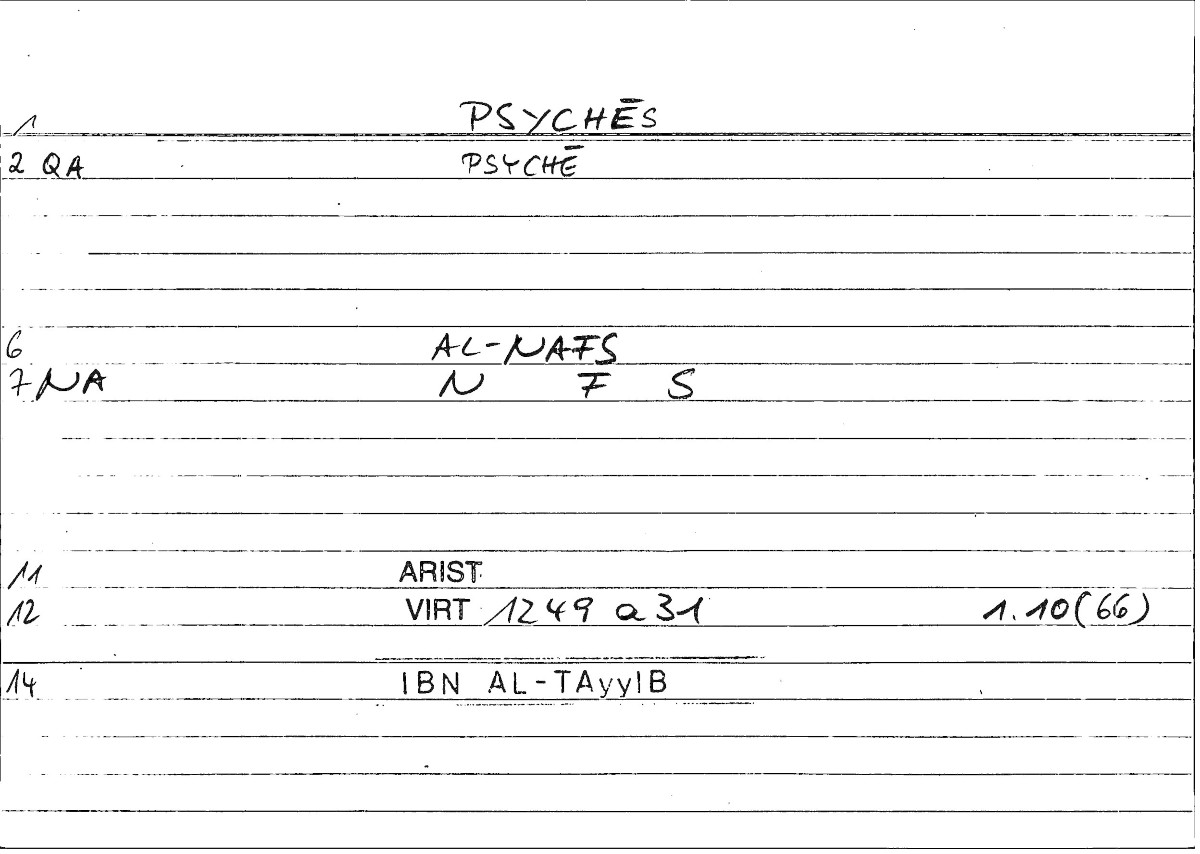 1 PSYCHĒS
2 QA PSYCHĒ
6 AL-NAFS
7 NA N F S
11 ARIST.
12 VIRT 1249 a 31 1.10(66)
14 IBN AL-TAyyIB